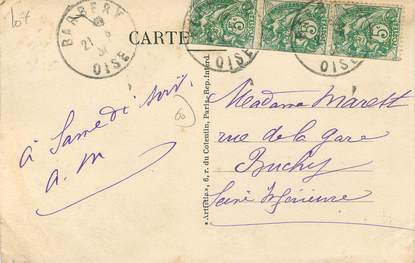 107
BARBERY
OISE
CARTE
OISE
5
5
5
à Samedi soir,
a. m
60
« Artistic », 6, r. du Cotentin, Paris. Rep. Interd.
Madame Marett
rue de la gare
Buchy
Seine Inférieure